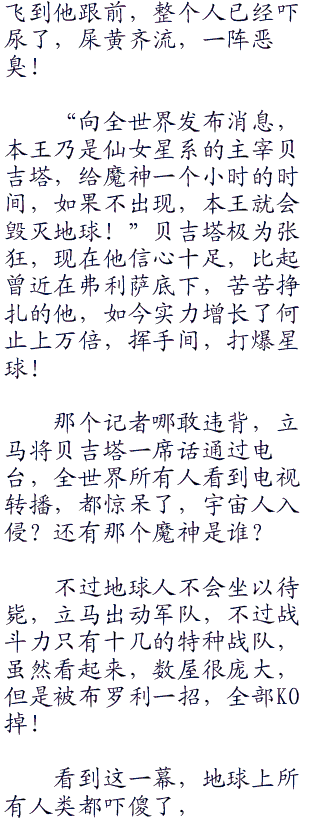 飞到他跟前，整个人已经吓
尿了，屎黄齐流，一阵恶
臭！
“向全世界发布消息，
本王乃是仙女星系的主宰贝
吉塔，给魔神一个小时的时
间，如果不出现，本王就会
毁灭地球！”贝吉塔极为张
狂，现在他信心十足，比起
曾近在弗利萨底下，苦苦挣
扎的他，如今实力增长了何
止上万倍，挥手间，打爆星
球！
那个记者哪敢违背，立
马将贝吉塔一席话通过电
台，全世界所有人看到电视
转播，都惊呆了，宇宙人入
侵？还有那个魔神是谁？
不过地球人不会坐以待
毙，立马出动军队，不过战
斗力只有十几的特种战队，
虽然看起来，数屋很庞大，
但是被布罗利一招，全部KO
掉！
看到这一幕，地球上所
有人类都吓傻了，